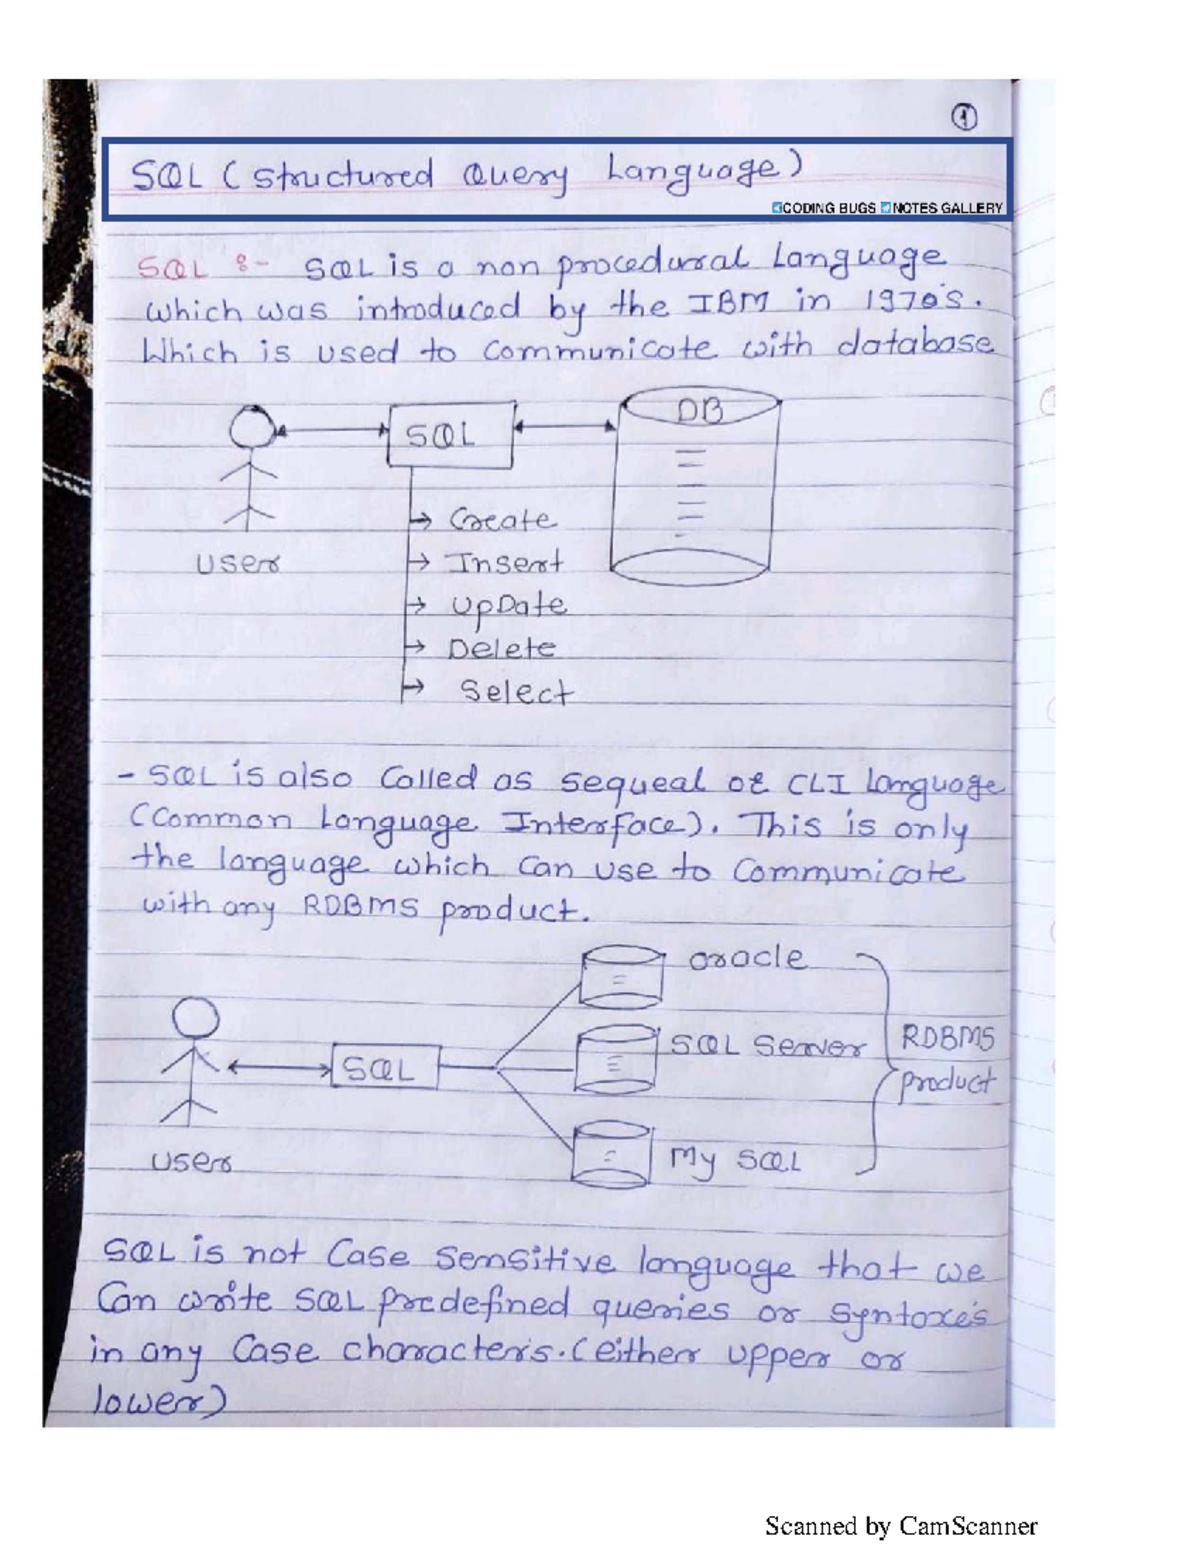 1
SQL (Structured Query Language)
CODING BUGS NOTES GALLERY
SQL :- SQL is a non procedural Language
which was introduced by the IBM in 1970's.
Which is used to communicate with database
SQL
DB
Create
User
Insert
UpDate
Delete
Select
- SQL is also Called as sequeal or CLI Language
(Common Language Interface). This is only
the language which can use to Communicate
with any RDBMS product.
Oracle
SQL
SQL Server
RDBMS
product
User
My SQL
SQL is not Case Sensitive language that we
Can write SQL predefined queries or syntaxe's
in any Case characters. (either upper or
lower)
Scanned by CamScanner